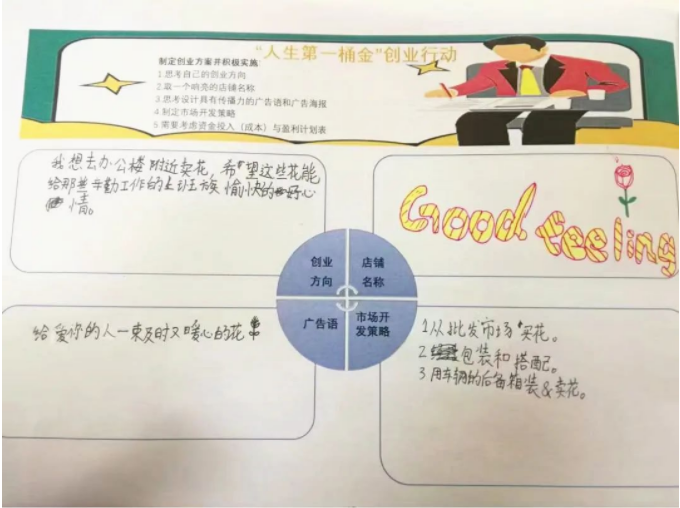 "人生第一桶金"创业行动
制定创业方案并积极实施:
1.思考自己的创业方向
2.取一个响亮的店铺名称
3.思考设计具有传播力的广告语和广告海报
4.制定市场开发策略
5.需要考虑资金投入（成本）与盈利计划表
我想去办公楼附近卖花，希望这些花能
给那些辛勤工作的上班族愉快的好心
情。
Good feeling
创业
方向
店铺
名称
广告语
市场开
发策略
给爱你的人一束及时又暖心的花
1从批发市场买花。
2包装和搭配。
3用车辆的后备箱装&卖花。